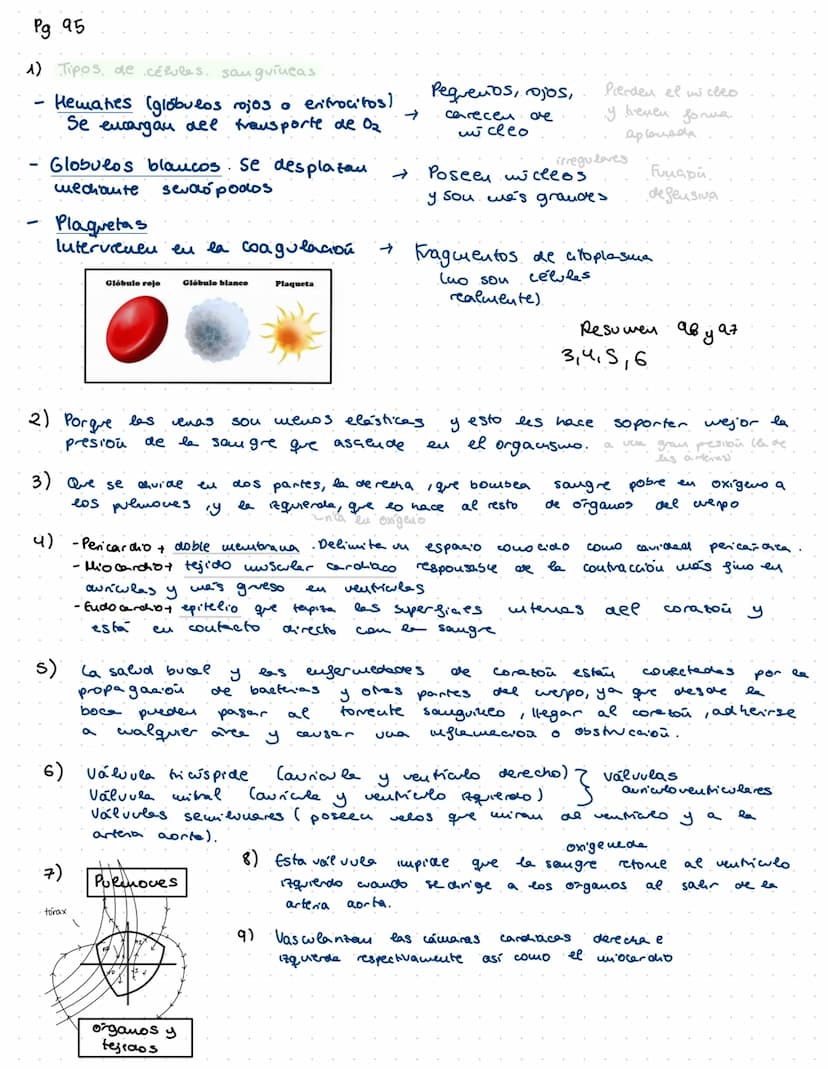 Pg 95
1) Tipos de células sanguíneas
- Hematíes (glóbulos rojos o eritrocitos) → Pequeños, rojos, Pierden el núcleo
Se encargan del transporte de O2 carecen de y tienen forma
núcleo aplanada
- Glóbulos blancos. Se desplazan → Poseen núcleos irregulares Función
mediante seudópodos y son más grandes defensiva
- Plaquetas
Intervienen en la coagulación → Fragmentos de citoplasma
(no son células
realmente)
Glóbulo rojo Glóbulo blanco Plaqueta
Resumen 96 y 97
3, 4, 5, 6
2) Porque las venas son menos elásticas y esto les hace soportar mejor la
presión de la sangre que asciende en el organismo. a una gran presión (la de
las arterias)
3) Que se divide en dos partes, la derecha, que bombea sangre pobre en oxígeno a
los pulmones, y la izquierda, que lo hace al resto de órganos del cuerpo
rica en oxígeno
4) - Pericardio → doble membrana. Delimita un espacio conocido como cavidad pericárdica.
- Miocardio → tejido muscular cardíaco responsable de la contracción más fino en
aurículas y más grueso en ventrículos
- Endocardio → epitelio que tapiza las superficies internas del corazón y
está en contacto directo con la sangre
5) La salud bucal y las enfermedades de corazón están conectadas por la
propagación de bacterias y otras partes del cuerpo, ya que desde la
boca pueden pasar al torrente sanguíneo, llegar al corazón, adherirse
a cualquier área y causar una inflamación o obstrucción.
6) Válvula tricúspide (aurícula y ventrículo derecho) } válvulas
Válvula mitral (aurícula y ventrículo izquierdo) auriculoventriculares
Válvulas semilunares (poseen velos que miran al ventrículo y a la
arteria aorta).
7) Pulmones
tórax
órganos y
tejidos
8) Esta válvula impide que la sangre oxigenada retorne al ventrículo
izquierdo cuando se dirige a los órganos al salir de la
arteria aorta.
9) Vascularizan las cámaras cardíacas derecha e
izquierda respectivamente así como el miocardio